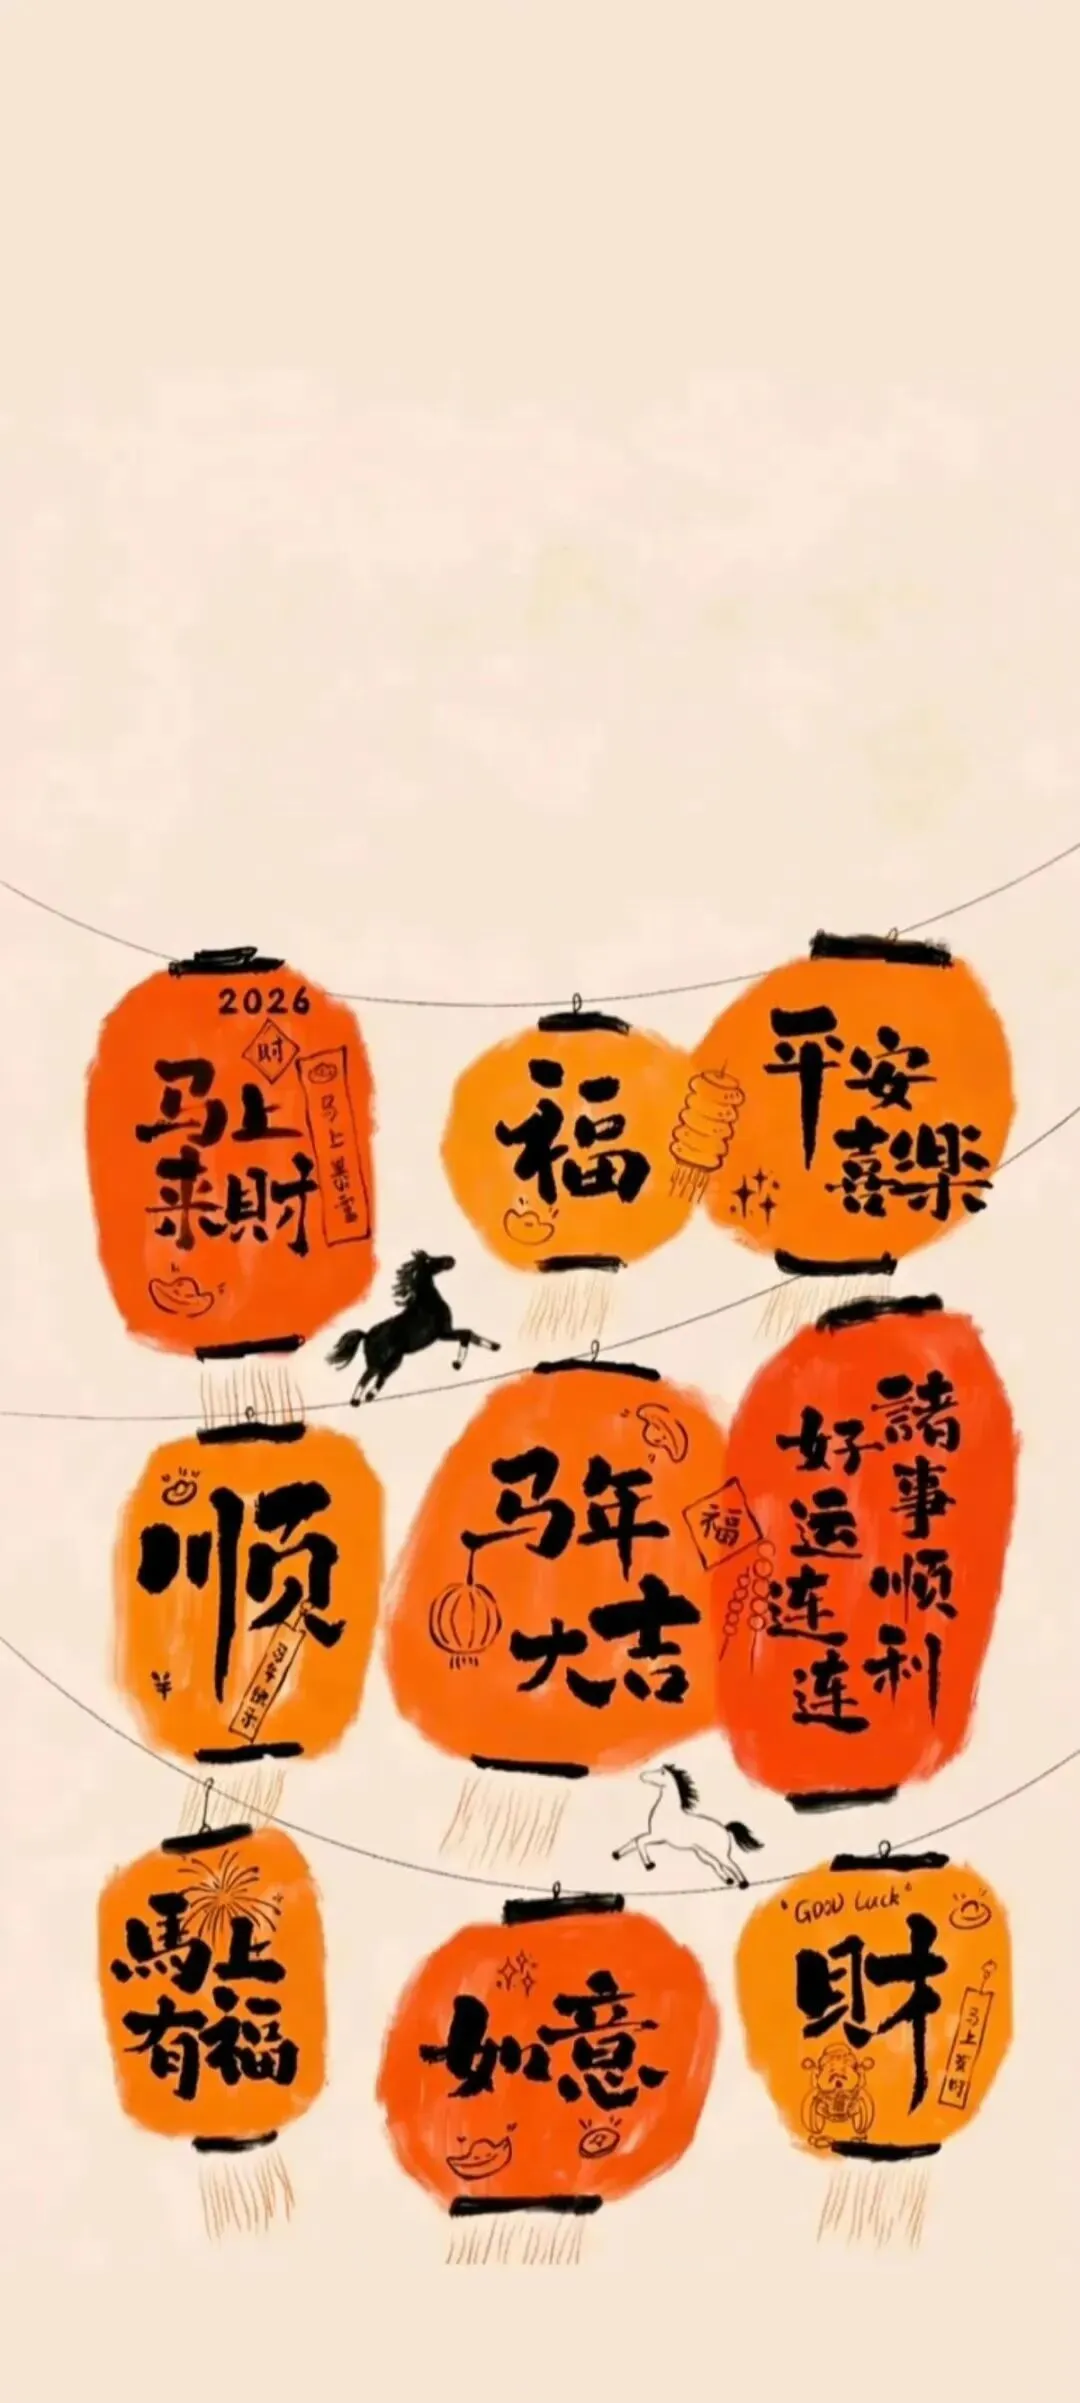 2026
财
马上
来財
马上暴富
福
平安
喜樂
顺
马年快乐
马年
大吉
福
諸事顺利
好运连连
馬上
有福
如意
"GOOD Luck"
財
马上发财